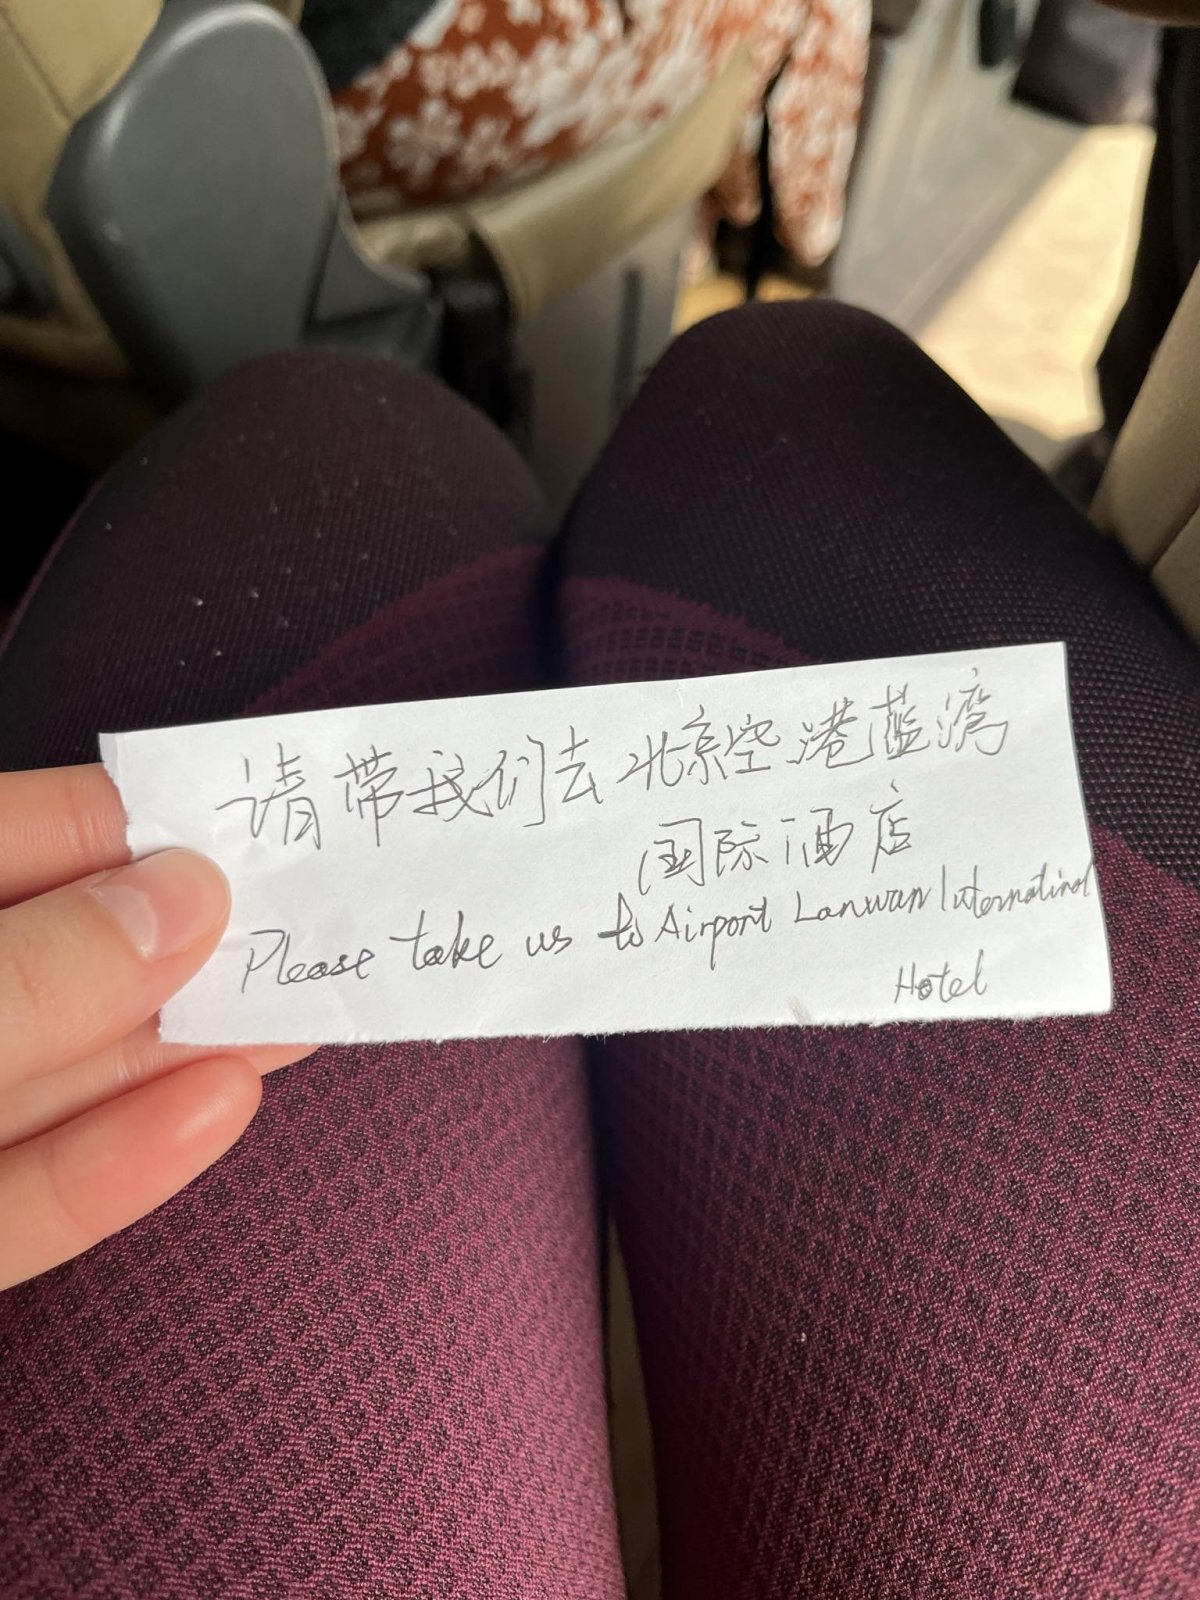 请带我们去北京空港蓝湾
国际酒店
Please take us to Airport Lanwan International
Hotel